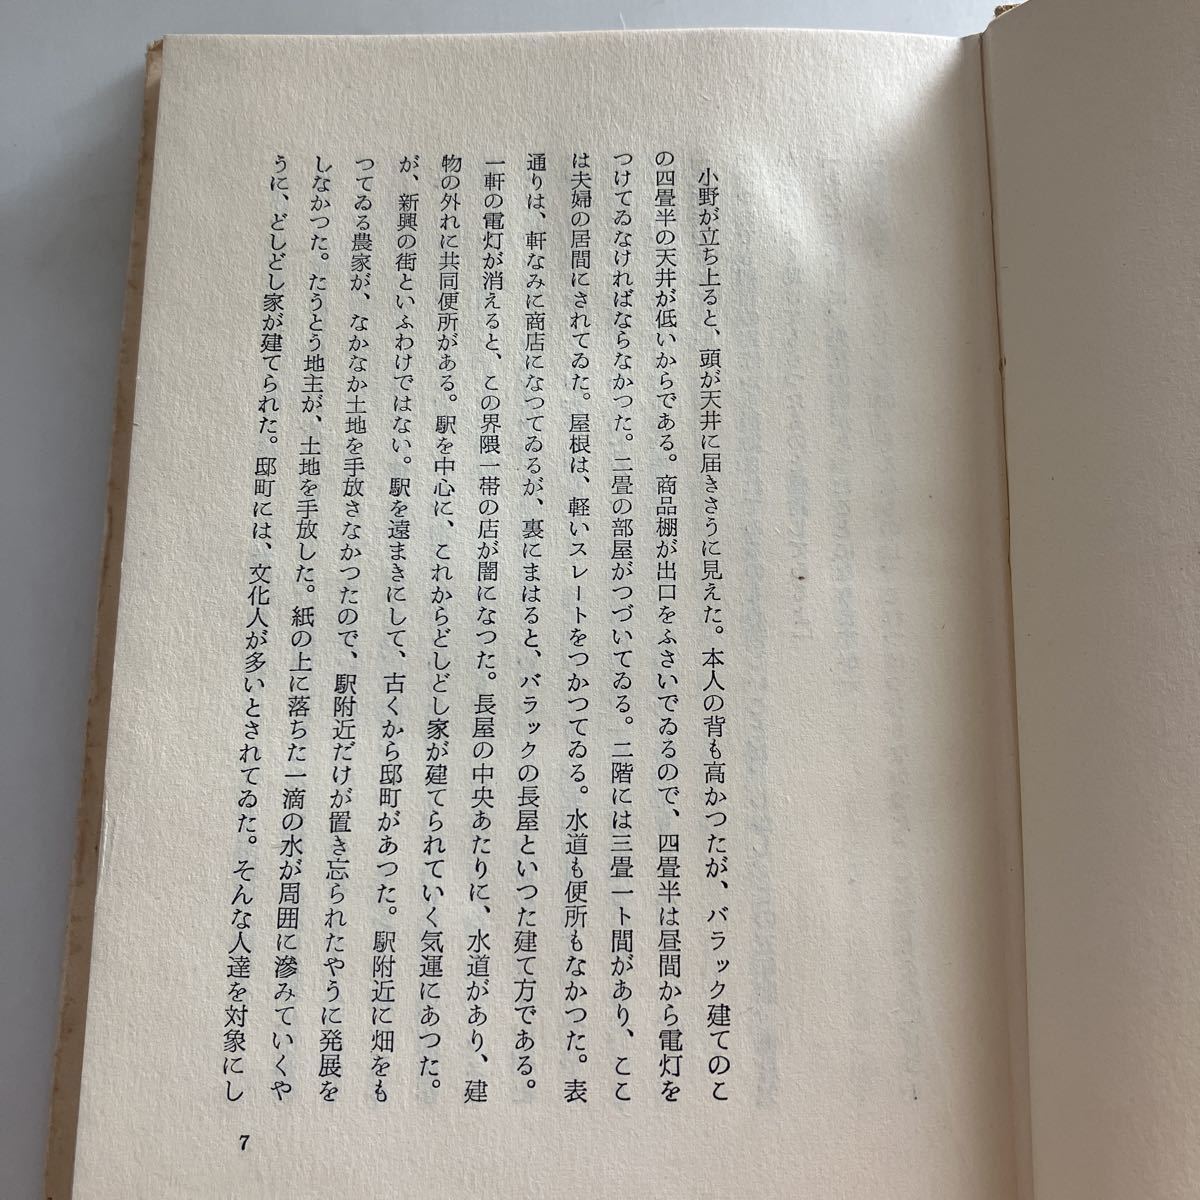 小野が立ち上ると、頭が天井に届きさうに見えた。本人の背も高かつたが、バラック建てのこ
の四畳半の天井が低いからである。商品棚が出口をふさいでゐるので、四畳半は昼間から電灯を
つけてゐなければならなかつた。二畳の部屋がつづいてゐる。二階には三畳一ト間があり、ここ
は夫婦の居間にされてゐた。屋根は、軽いスレートをつかつてゐる。水道も便所もなかつた。表
通りは、軒なみに商店になつてゐるが、裏にまはると、バラックの長屋といつた建て方である。
一軒の電灯が消えると、この界隈一帯の店が闇になつた。長屋の中央あたりに、水道があり、建
物の外れに共同便所がある。駅を中心に、これからどしどし家が建てられていく気運にあつた。
が、新興の街といふわけではない。駅を遠まきにして、古くから邸町があつた。駅附近に畑をも
つてゐる農家が、なかなか土地を手放さなかつたので、駅附近だけが置き忘られたやうに発展を
しなかつた。たうとう地主が、土地を手放した。紙の上に落ちた一滴の水が周囲に滲みていくや
うに、どしどし家が建てられた。邸町には、文化人が多いとされてゐた。そんな人達を対象にし
7